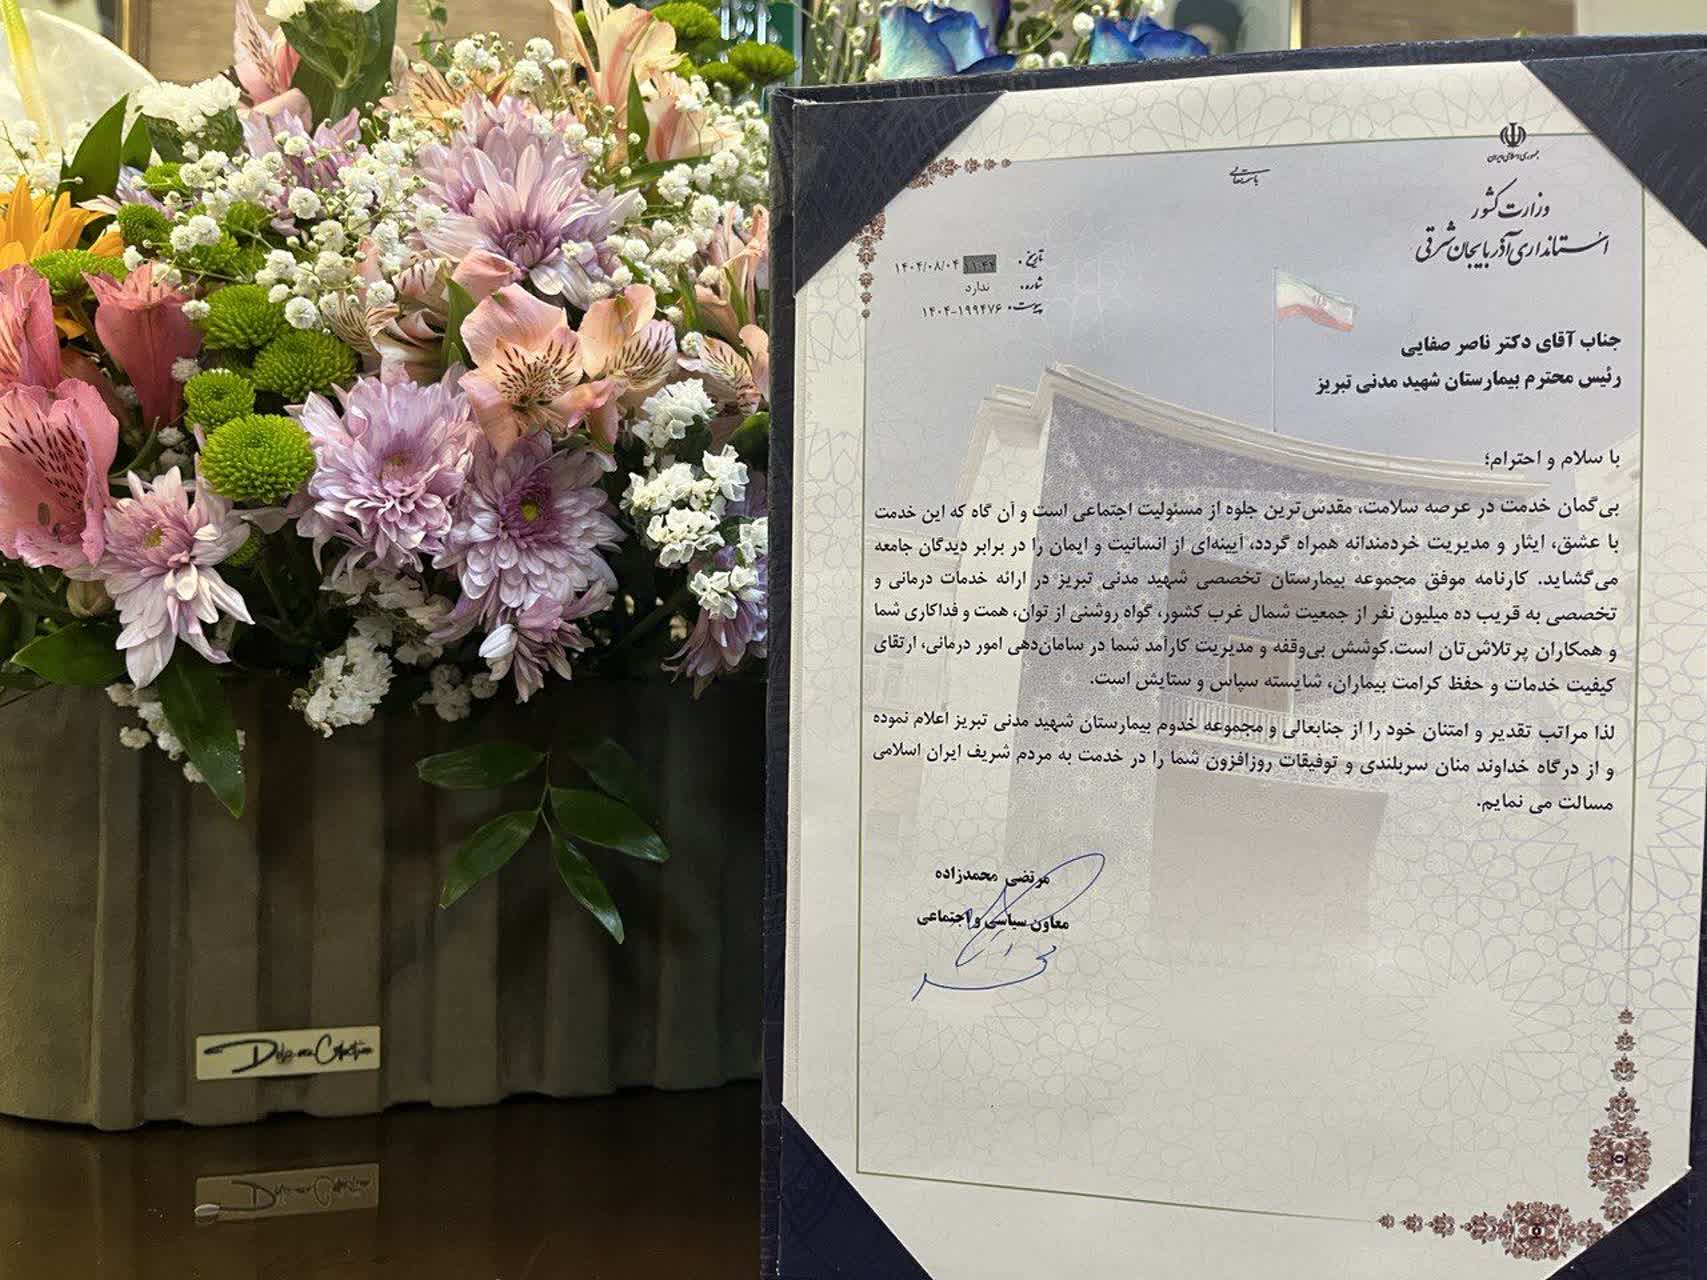 جمهوری اسلامی ایران
باسمه‌تعالی
وزارت کشور
استانداری آذربایجان شرقی
تاریخ: ۱۴۰۴/۰۸/۰۴ ۱۱:۴۲
شماره: ندارد
پیوست: ۱۴۰۴-۱۹۹۴۷۶
جناب آقای دکتر ناصر صفایی
رئیس محترم بیمارستان شهید مدنی تبریز
با سلام و احترام؛
بی‌گمان خدمت در عرصه سلامت، مقدس‌ترین جلوه از مسئولیت اجتماعی است و آن گاه که این خدمت
با عشق، ایثار و مدیریت خردمندانه همراه گردد، آیینه‌ای از انسانیت و ایمان را در برابر دیدگان جامعه
می‌گشاید. کارنامه موفق مجموعه بیمارستان تخصصی شهید مدنی تبریز در ارائه خدمات درمانی و
تخصصی به قریب ده میلیون نفر از جمعیت شمال غرب کشور، گواه روشنی از توان، همت و فداکاری شما
و همکاران پرتلاش‌تان است.کوشش بی‌وقفه و مدیریت کارآمد شما در سامان‌دهی امور درمانی، ارتقای
کیفیت خدمات و حفظ کرامت بیماران، شایسته سپاس و ستایش است.
لذا مراتب تقدیر و امتنان خود را از جنابعالی و مجموعه خدوم بیمارستان شهید مدنی تبریز اعلام نموده
و از درگاه خداوند منان سربلندی و توفیقات روزافزون شما را در خدمت به مردم شریف ایران اسلامی
مسالت می نمایم.
مرتضی محمدزاده
معاون سیاسی و اجتماعی